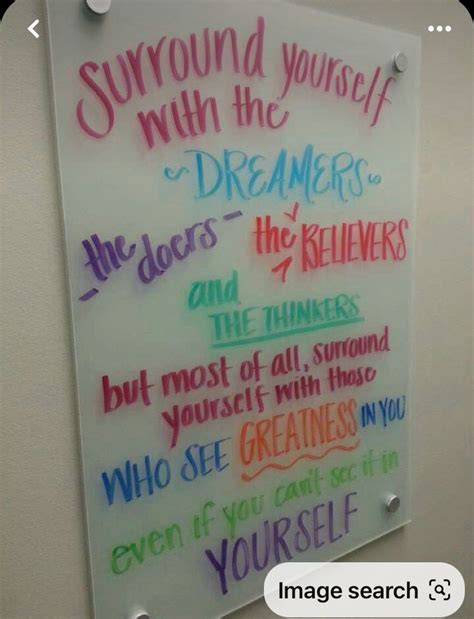 Surround yourself
with the
~DREAMERS~
-the doers- the BELIEVERS
and
THE THINKERS
but most of all, surround
yourself with those
WHO SEE GREATNESS IN YOU
even if you can't see it in
YOURSELF
Image search